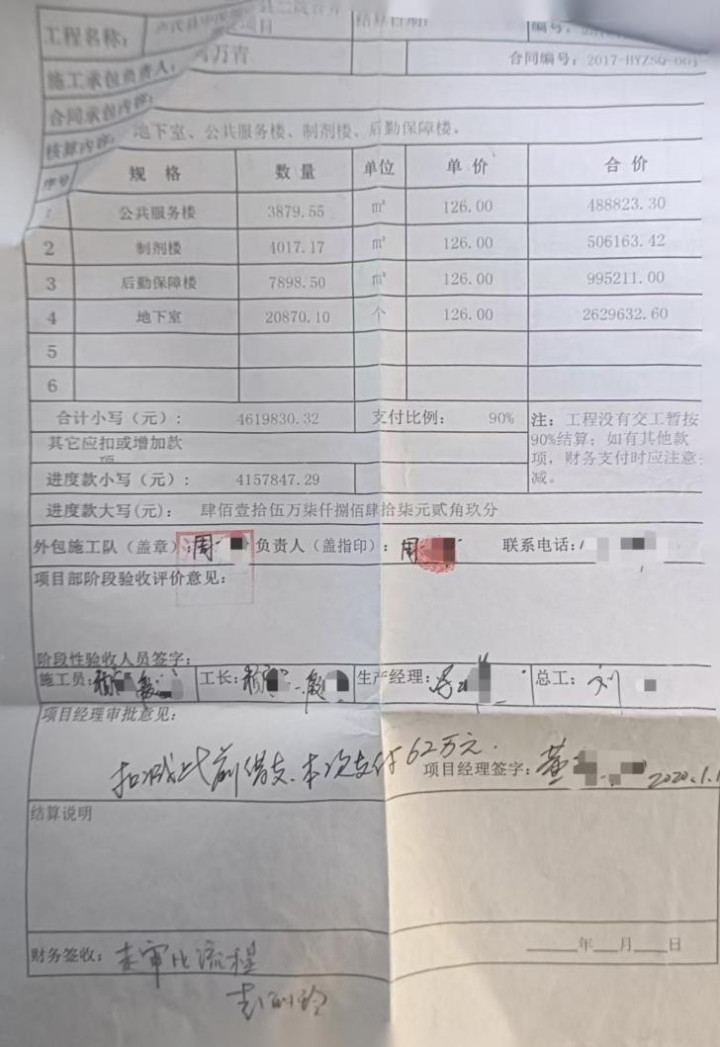 工程名称:
项目
结算日期:
编号:
施工承包负责人:
万青
合同编号: 2017-HYZSQ-001
合同承包内容:
核算内容:
地下室、公共服务楼、制剂楼、后勤保障楼、
序号 规 格 数 量 单位 单 价 合 价
1 公共服务楼 3879.55 ㎡ 126.00 488823.30
2 制剂楼 4017.17 ㎡ 126.00 506163.42
3 后勤保障楼 7898.50 ㎡ 126.00 995211.00
4 地下室 20870.10 个 126.00 2629632.60
5
6
合计小写(元): 4619830.32 支付比例: 90%
注: 工程没有交工暂按
90%结算; 如有其他款
项, 财务支付时应注意
减。
其它应扣或增加款
项
进度款小写(元): 4157847.29
进度款大写(元): 肆佰壹拾伍万柒仟捌佰肆拾柒元贰角玖分
外包施工队(盖章): 周 负责人(盖指印): 周 联系电话:
项目部阶段验收评价意见:
阶段性验收人员签字:
施工员: 工长: 生产经理: 总工: 刘
项目经理审批意见:
扣减此前借支、本次支付62万元.
项目经理签字: 董 2020.1.1
结算说明
财务签收: 走审批流程
年 月 日